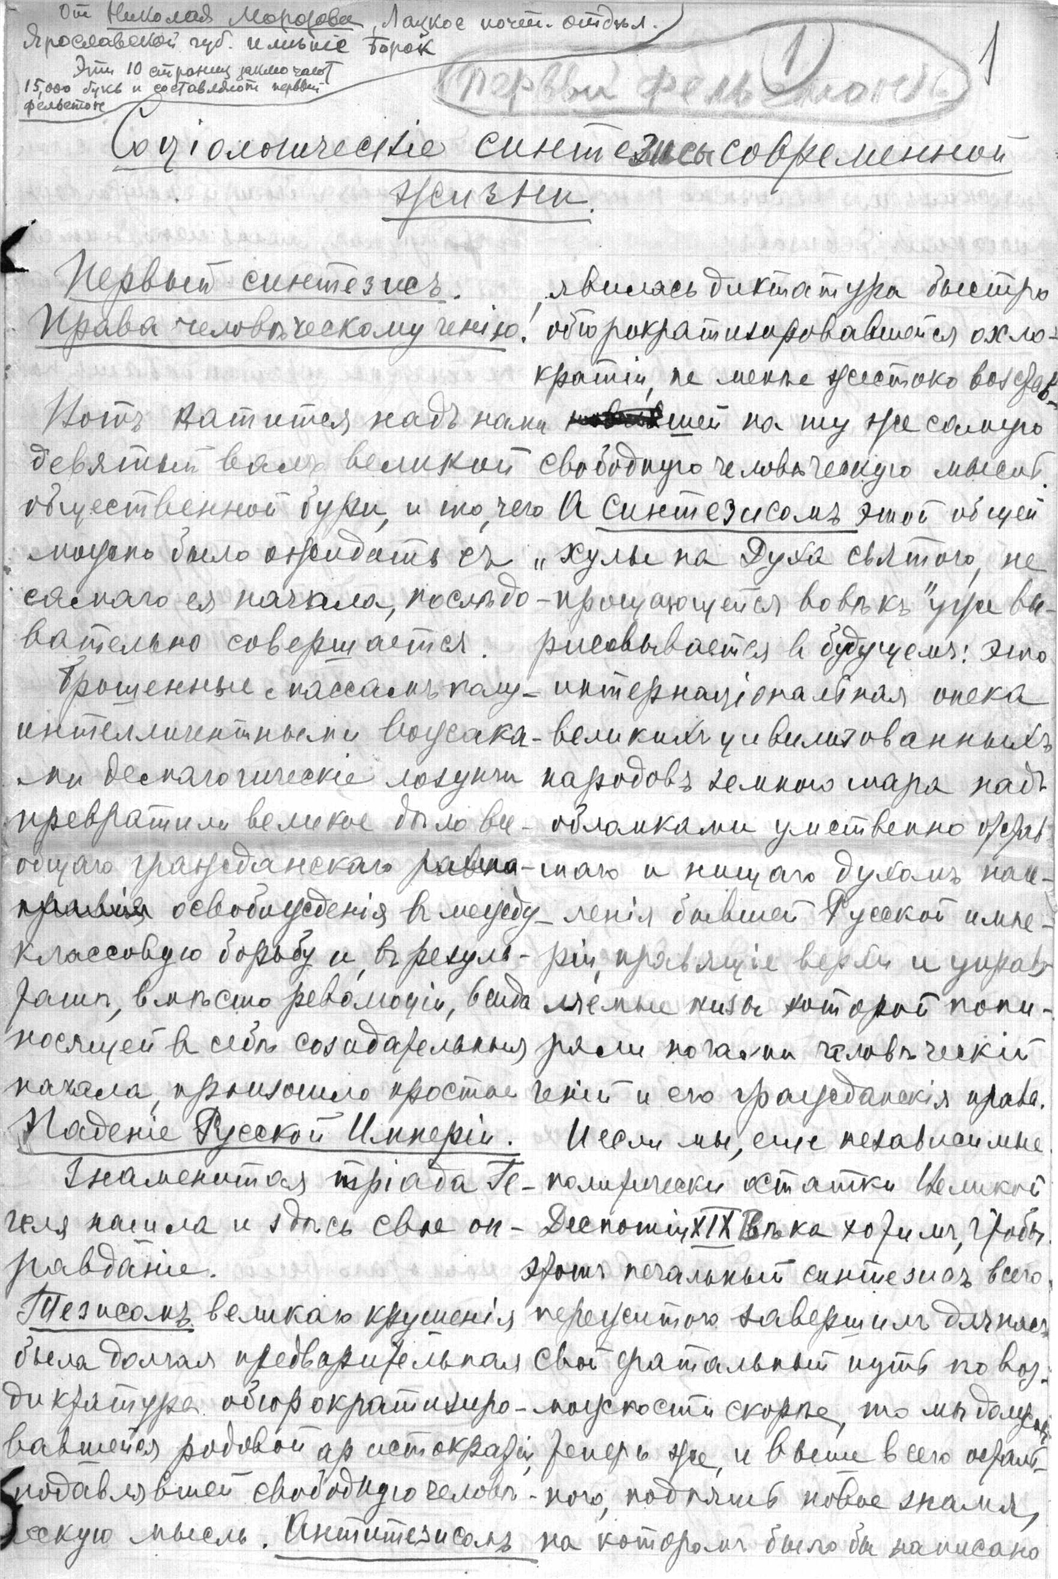 От Николая Морозова, Лацкое почт. отдѣл.
Ярославской губ. имѣніе Борок
Эти 10 страниц заключают
15,000 букв и составляют первый
фельетон
1
Первый фельетонъ
1
Соціологическіе синтезисы современной
жизни.
Первый синтезисъ.
Права человѣческому генію!
Вотъ катится надъ нами
девятый валъ великой
общественной бури, и то, чего
можно было ожидать съ
самаго ея начала, послѣдо-
вательно совершается.
Брошенные массамъ полу-
интеллигентными вожака-
ми демагогическіе лозунги
превратили великое дѣло все-
общаго гражданскаго
освобожденія в между-
классовую борьбу и, въ резуль-
татѣ, вмѣсто революціи, всегда
носящей в себѣ созидательныя
начала, произошло простое
Паденіе Русской Имперіи.
Знаменитая тріада Ге-
геля нашла и здѣсь свое оп-
равданіе.
Тезисомъ великаго крушенія
была долгая предварительная
диктатура обюрократизиро-
вавшейся родовой аристократіи,
подавлявшей свободную человѣ-
ческую мысль. Антитезисомъ
явилась диктатура быстро
обюрократизировавшейся охло-
кратіи, не менѣе жестоко возстав-
шей на ту же самую
свободную человѣческую мысль.
А синтезисомъ этой общей
„хулы на Духа святого, не
прощающейся вовѣкъ" уже вы-
рисовывается в будущемъ: это
интернаціональная опека
великихъ цивилизованныхъ
народовъ земного шара надъ
обломками умственно отста-
лаго и нищаго духомъ насе-
ленія бывшей Русской импе-
ріи, правящіе верхи и управ-
ляемые низы которой попи-
рали ногами человѣческій
геній и его гражданскія права.
И если мы, еще независимые
политически остатки Великой
Деспотіи XIX вѣка хотимъ, чтобы
этотъ печальный синтезисъ всего
пережитого завершилъ для насъ
свой фатальный путь по воз-
можности скорѣе, то мы должны
теперь же, и выше всего осталь-
ного, поднять новое знамя,
на которомъ было бы написано